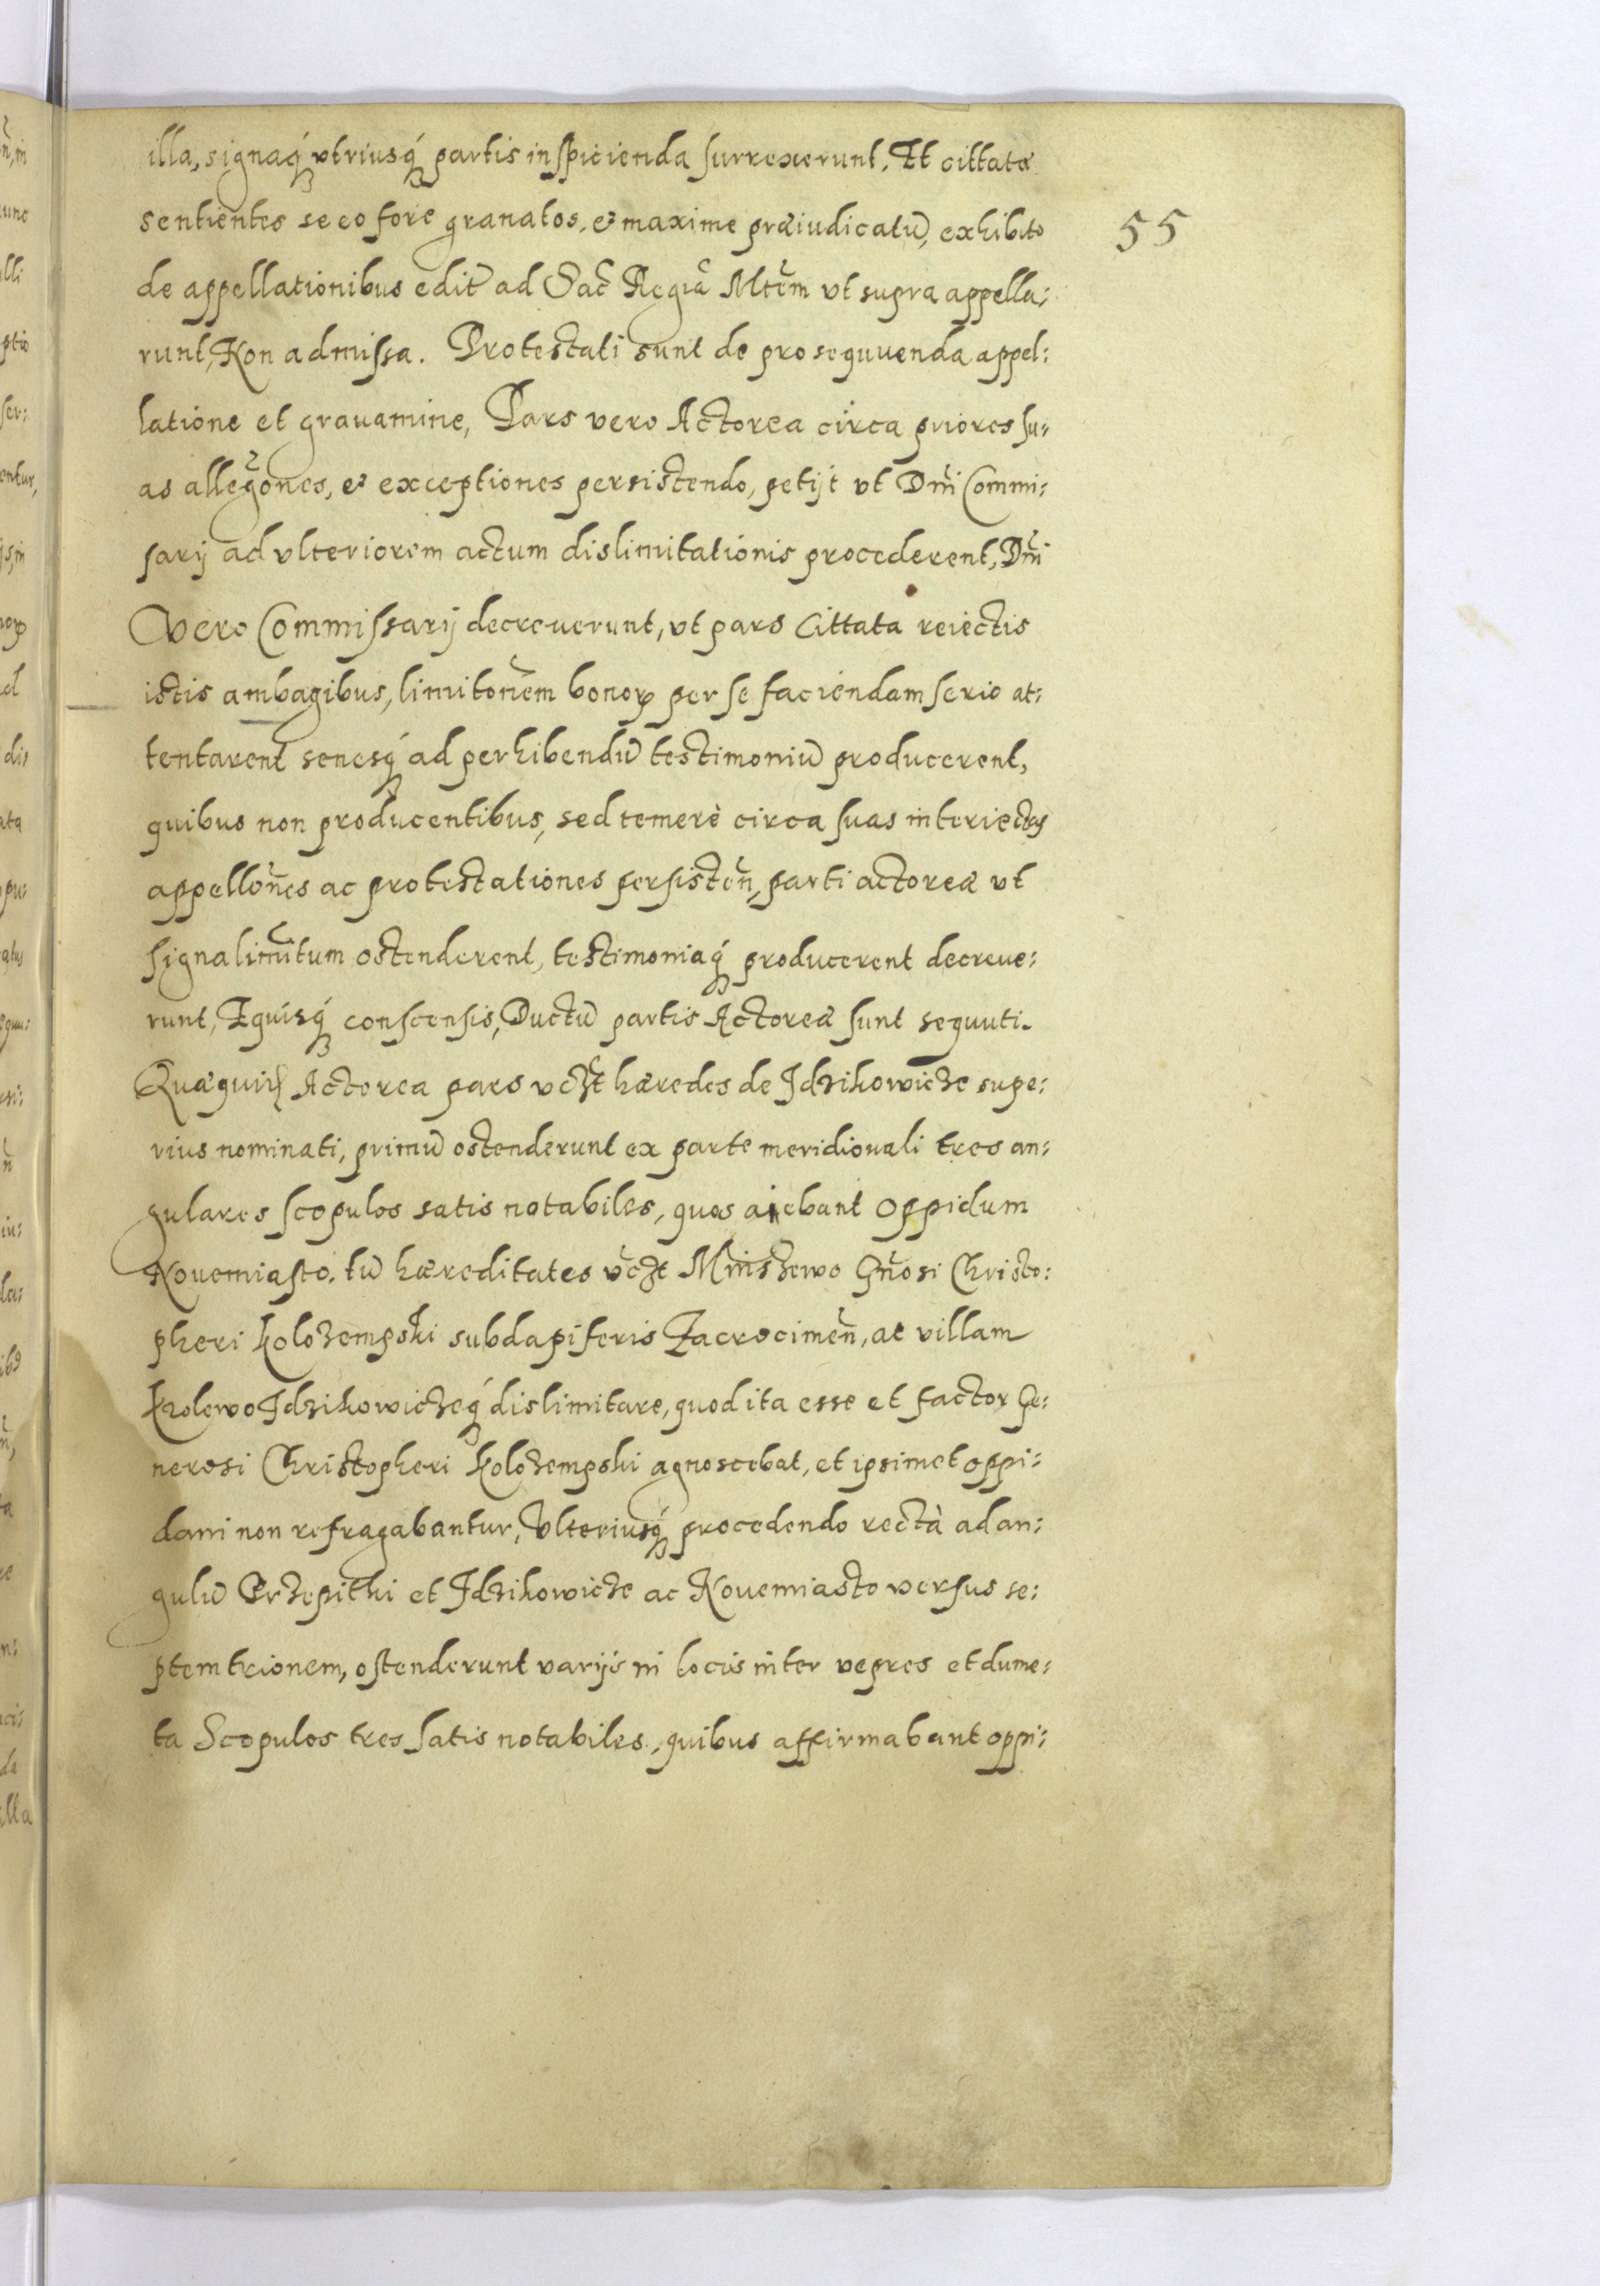 illa, signaq́ꝫ vtriusq́ꝫ partis inspicienda surrexerunt. Et cittatæ
55
sentientes se eo fore grauatos, et maxime præiudicatū, exhibito
de appellationibus edit̄ ad Sac̃ Regiã Mtẽm vt supra appella:
runt, Non admissa. Protestati sunt de prosequuenda appel:
latione et grauamine, Pars vero Actorea circa priores su:
as alleg̃ones, et exceptiones persistendo, petijt vt Dñi Commi:
sarij ad vlteriorem actum dislimitationis procederent, Dñi
Vero Commissarij decreuerunt, vt pars Cittata reiectis
istis ambagibus, limitoñem bonoꝝ per se faciendam serio at:
tentarent senesq́ꝫ ad perhibendū testimoniū producerent,
quibus non producentibus, sed temerè circa suas interiectas
appelloñes ac protestationes persisteñ, parti actoreæ vt
signa limitum ostenderent, testimoniaq́ꝫ producerent decreue:
runt, Equisq́ꝫ conscensis, Ductū partis Actoreæ sunt sequuti.
Quæquid Actorea pars vcꝫt hæredes de Idzikowicze supe:
rius nominati, primū ostenderunt ex parte meridionali tres an:
gulares scopulos satis notabiles, quos aiebant Oppidum
Nouemiasto, tū hæreditates vcꝫt Mniszewo Gñosi Christo:
pheri Kolozempski subdapiferis Zacrocimeñ, ac villam
Krolewo Idzikowiczeq́ꝫ dislimitare, quod ita esse et factor Ge:
nerosi Christopheri Kolozempski agnoscebat, et ipsimet oppi:
dani non refragabantur, Vlteriusq́ꝫ procedendo rectà ad an:
gulū Przepitki et Idzikowicze ac Nouemiasto versus se:
ptemtrionem, ostenderunt varijs in locis inter vepres et dume:
ta Scopulos tres satis notabiles, quibus affirmabant oppi: